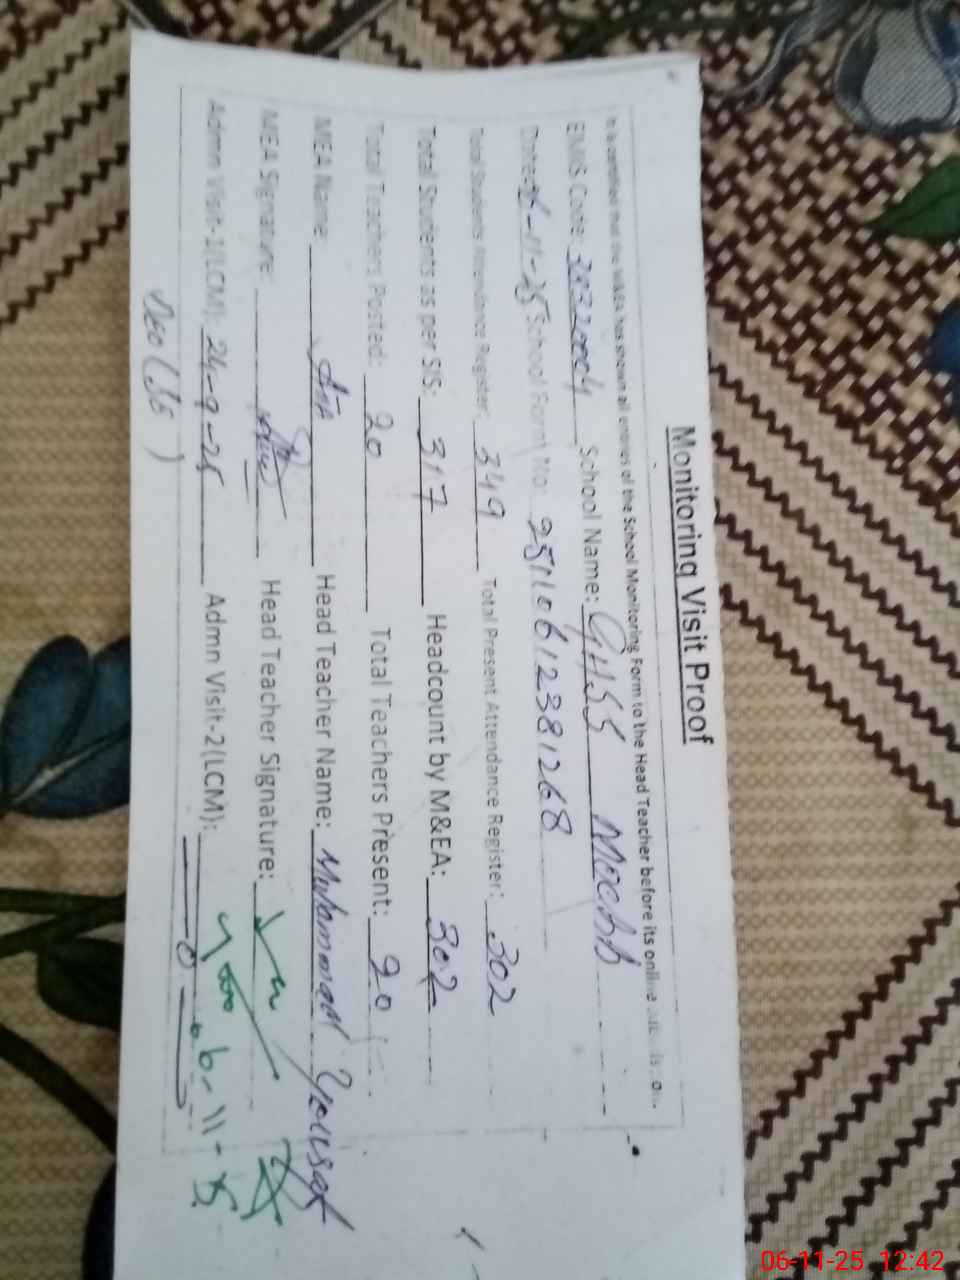 Monitoring Visit Proof
It is certified that the M&EA has shown all entries of the School Monitoring Form to the Head Teacher before its online
EMIS Code: School Name: GHSS Machh
Dated: 6-11-25 School Form No: 25110612381268
Total Students Attendance Register: 349 Total Present Attendance Register: 302
Total Students as per SIS: 317 Headcount by M&EA: 302
Total Teachers Posted: 20 Total Teachers Present: 20
MEA Name: Head Teacher Name: Muhammad Yousaf
MEA Signature: Head Teacher Signature:
Admn Visit-1(LCM): 24-9-25 Admn Visit-2(LCM): 0
6-11-25
DEO (SE)
06-11-25 12:42